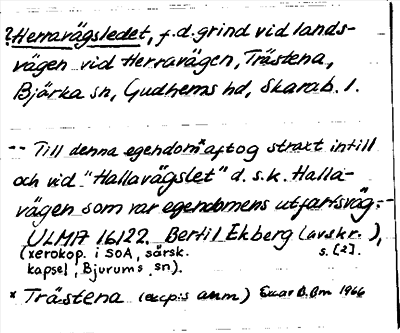 ?Herravägsledet, f.d. grind vid lands-
vägen vid Herravägen, Trästena,
Bjärka sn, Gudhems hd, Skarab. l.
-- Till denna egendom* aftog straxt intill
och vid "Hallavägslet" d.s.k. Halla-
vägen som var egendomens utfartsväg.-
ULMA 16122. Bertil Ekberg (avskr.),
(xerokop. i SOA, särsk. s. [2].
kapsel, Bjurums sn).
* Trästena (excp:s anm)